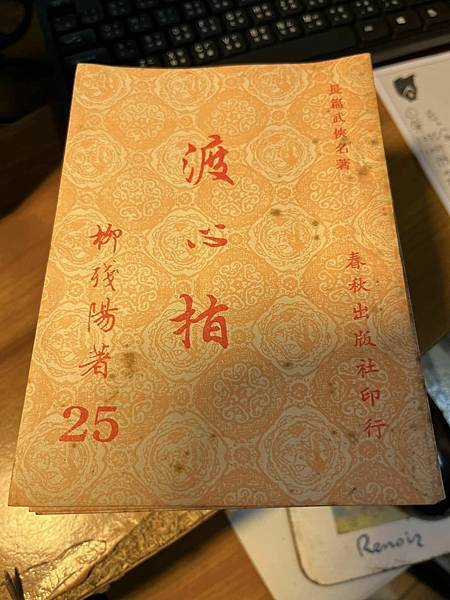 長篇武俠名著
春秋出版社印行
渡心指
柳殘陽著
25
Renoir